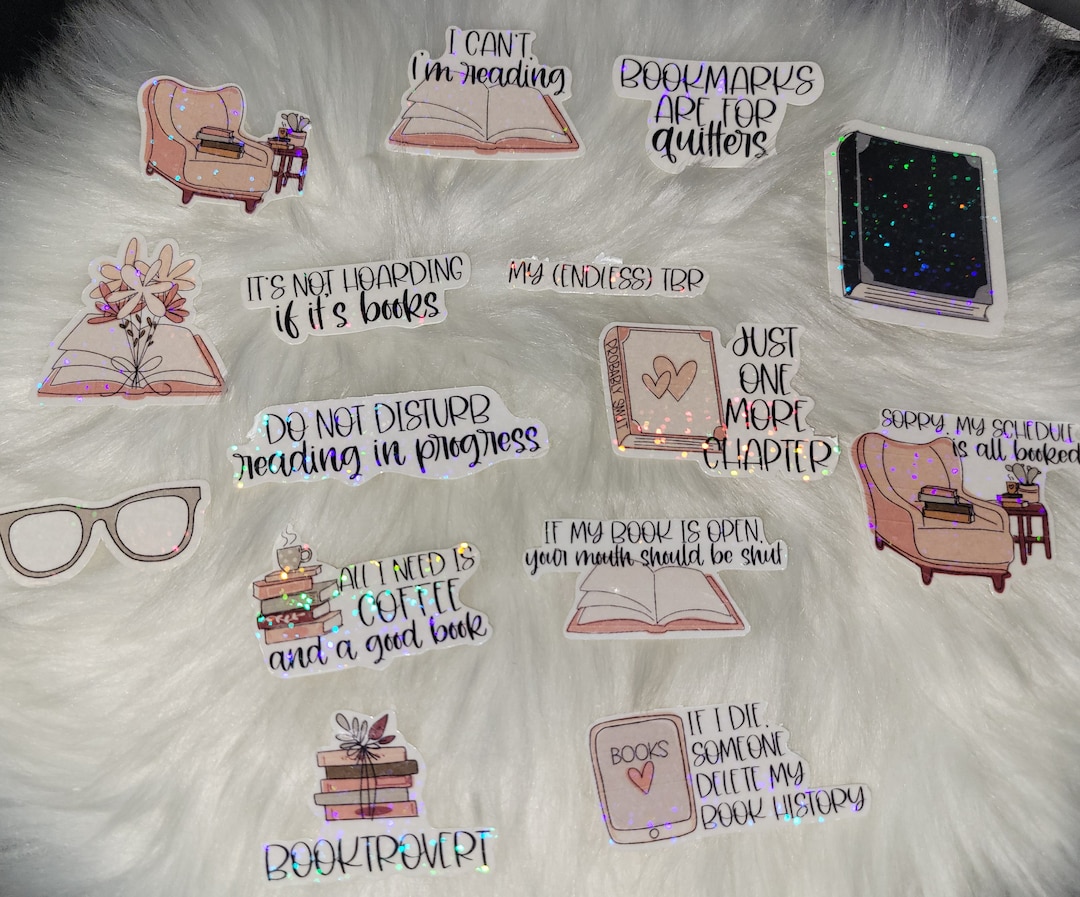 I CAN'T,
I'm reading
BOOKMARKS
ARE FOR
quitters
IT'S NOT HOARDING
if it's books
MY (ENDLESS) TBR
PROBABLY SMUT
JUST
ONE
MORE
CHAPTER
DO NOT DISTURB
reading in progress
SORRY, MY SCHEDULE
is all booked
ALL I NEED IS
COFFEE
and a good book
IF MY BOOK IS OPEN,
your mouth should be shut
BOOKTROVERT
BOOKS
IF I DIE,
SOMEONE
DELETE MY
BOOK HISTORY